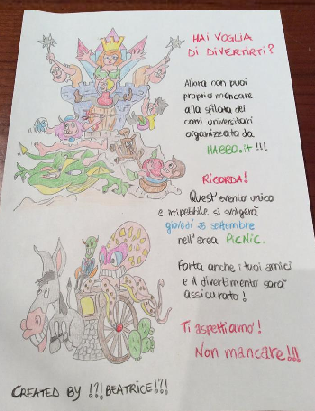 HAI VOGLIA
DI DIVERTIRTI?
Allora non puoi
proprio mancare
alla sfilata dei
carri universitari
organizzata da
HABBO.it!!!
RICORDA!
Quest'evento unico
e irripetibile si svolgerà
giovedì 25 settembre
nell'area PICNIC.
Porta anche i tuoi amici
e il divertimento sarà
assicurato!
Ti aspettiamo!
Non mancare!!!
CREATED BY !?!BEATRICE!?!